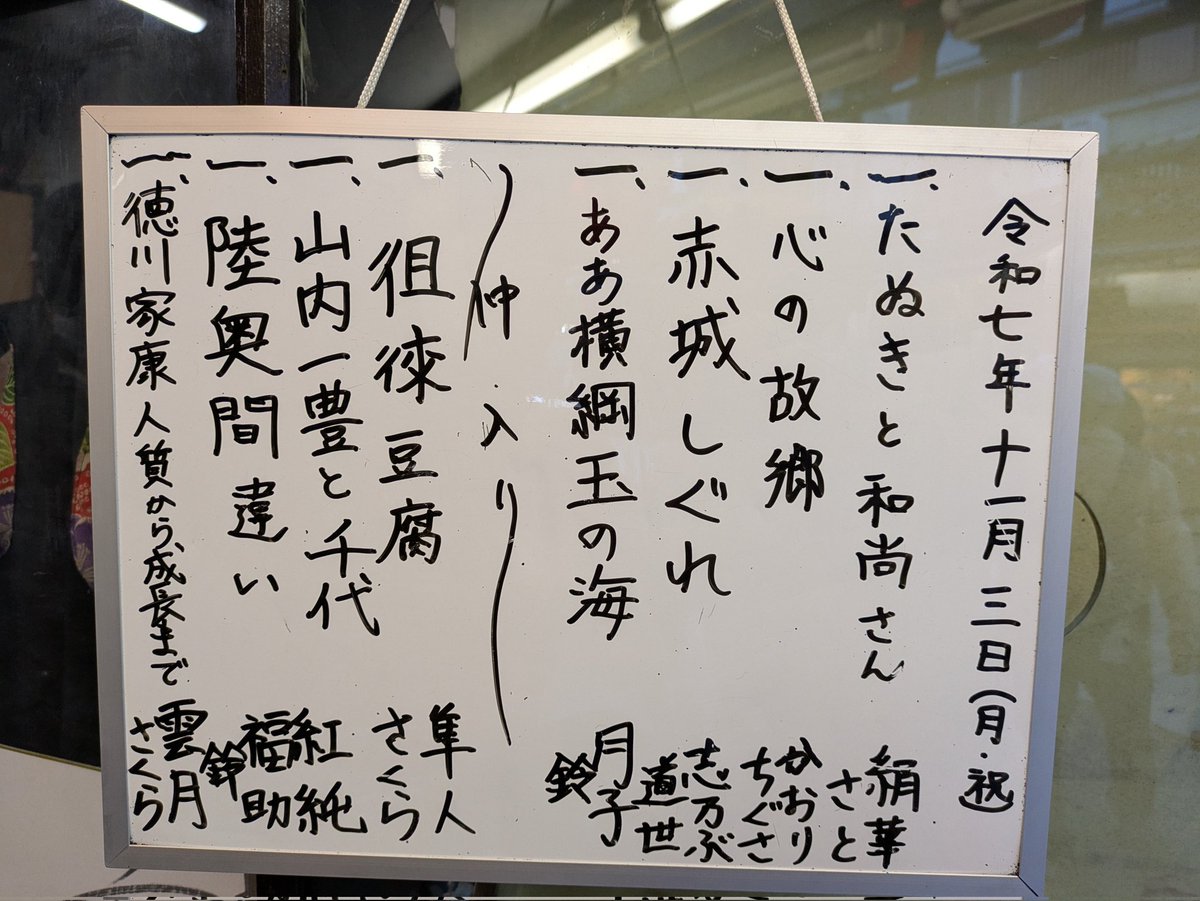 令和七年十一月三日(月・祝)
一、たぬきと和尚さん 絹華
さと
一、心の故郷 かおり
ちぐさ
一、赤城しぐれ 志万ぶ
道世
一、ああ横綱玉の海 月子
鈴
仲入り
一、徂徠豆腐 隼人
さくら
一、山内一豊と千代 紅純
一、陸奥間違い 福助
鈴
一、徳川家康人質から成長まで 雲月
さくら